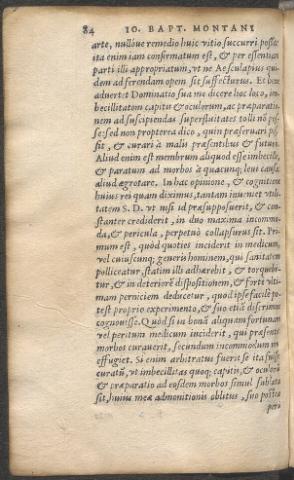 84 IO. BAPT. MONTANI
arte, nulliúe remedio huic vitio succurri possit
ita enim iam confirmatum est, & per essentiam
parti illi appropriatum, vt ne Aesculapius qui-
dem ad ferendam opem sit suffecturus. Et hoc
aduertet Dominatio sua me dicere hoc loco, im-
becillitatem capitis & oculorum, ac præparatio-
nem ad suscipiendas superfluitates tolli nõ pos-
se: sed non propterea dico, quin præseruari pos-
sit, & curari à malis præsentibus & futuris.
Aliud enim est membrum aliquod esse imbecille,
& paratum ad morbos à quacunq; leui causa,
aliud ægrotare. In hac opinione, & cognitione
huius rei quam diximus, tantam inueniet vtili-
tatem S. D. vt nisi id præsupposuerit, & con-
stanter crediderit, in duo maxima incommo-
da, & pericula, perpetuò collapsurus sit. Pri-
mum est, quòd quoties inciderit in medicum,
vel cuiuscunq; generis hominem, qui sanitatem
polliceatur, statim illi adhærebit, & torquebi-
tur, & in deteriorẽ dispositionem, & forte vlti-
mam perniciem deducetur, quod ipse facilè po-
test proprio experimento, & suo etiã discrimine
cognouisse. Quòd si in bonã aliquam fortunam
vel peritum medicum inciderit, qui præsentes
morbos curauerit, secundum incommodum non
effugiet. Si enim arbitratus fuerit se ita fuisse
curatũ, vt imbecillitas quoq; capitis, & oculorũ
& præparatio ad eosdem morbos simul sublata
sit, huius meæ admonitionis oblitus, suo postea
peri